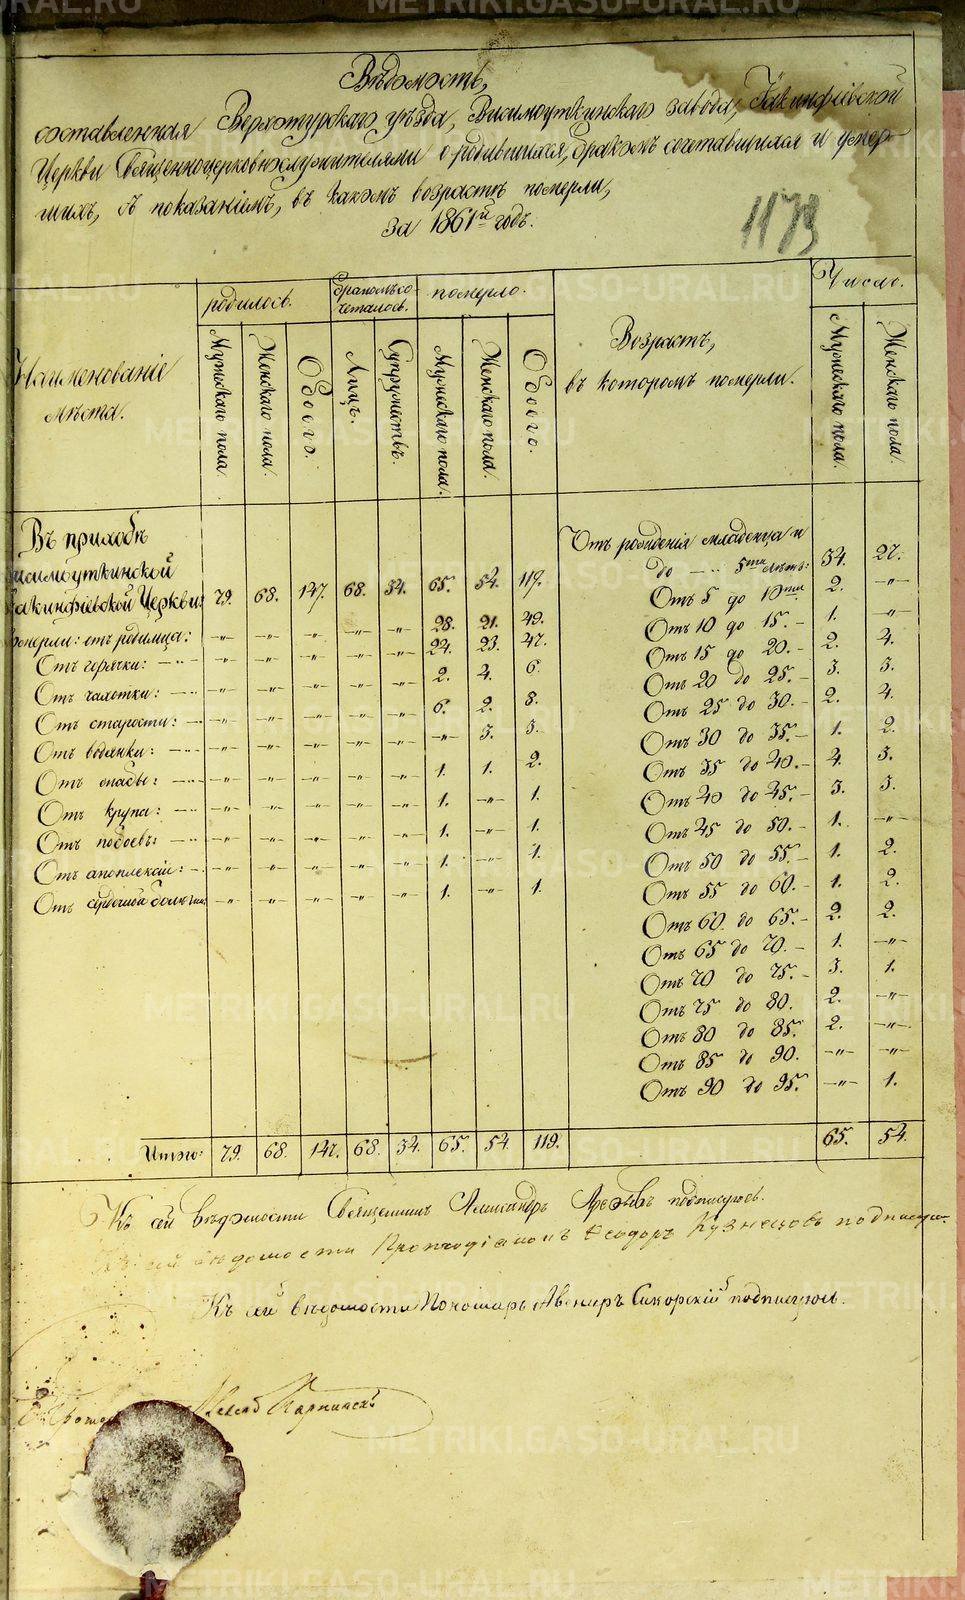 Вѣдомость,
составленная Верхотурскаго уѣзда, Висимоуткинскаго завода, Іакинфіевской
Церкви Священноцерковнослужителями о родившихся, бракомъ сочетавшихся и умер-
шихъ, съ показаніемъ, въ какомъ возрастѣ померли,
за 1861й годъ.
1179
Наименованіе мѣста.
родилось.
Мужескаго пола.
Женскаго пола.
Обоего.
бракомъ со-
четалось.
Лицъ.
Супружествъ.
померло.
Мужескаго пола.
Женскаго пола.
Обоего.
Возрастъ,
въ которомъ померли.
Число.
Мужескаго пола.
Женскаго пола.
Въ приходѣ
Висимоуткинской
Іакинфіевской Церкви: 79. 68. 147. 68. 34. 65. 54. 119.
померли: отъ родимца: -„- -„- -„- -„- -„- 28. 21. 49.
Отъ горячки: -„- -„- -„- -„- -„- 24. 23. 47.
Отъ чахотки: -„- -„- -„- -„- -„- 2. 4. 6.
Отъ старости: -„- -„- -„- -„- -„- 6. 2. 8.
Отъ водянки: -„- -„- -„- -„- -„- -„- 3. 3.
Отъ -„- -„- -„- -„- -„- 1. 1. 2.
Отъ крупа: -„- -„- -„- -„- -„- 1. -„- 1.
Отъ побоевъ: -„- -„- -„- -„- -„- 1. -„- 1.
Отъ апоплексіи: -„- -„- -„- -„- -„- 1. -„- 1.
Отъ -„- -„- -„- -„- -„- 1. -„- 1.
Отъ рожденія младенца и
до 5ти лѣтъ: 34. 27.
Отъ 5 до 10ти 2. -„-
Отъ 10 до 15. 1. -„-
Отъ 15 до 20. 2. 4.
Отъ 20 до 25. 3. 3.
Отъ 25 до 30. 2. 4.
Отъ 30 до 35. 1. 2.
Отъ 35 до 40. 4. 3.
Отъ 40 до 45. 3. 3.
Отъ 45 до 50. 1. -„-
Отъ 50 до 55. 1. 2.
Отъ 55 до 60. 1. 2.
Отъ 60 до 65. 2. 2.
Отъ 65 до 70. 1. -„-
Отъ 70 до 75. 3. 1.
Отъ 75 до 80. 2. -„-
Отъ 80 до 85. 2. -„-
Отъ 85 до 90. -„- -„-
Отъ 90 до 95. -„- 1.
Итого: 79. 68. 147. 68. 34. 65. 54. 119. 65. 54.
Къ сей вѣдомости Священникъ Александръ подписуюсь.
Къ сей вѣдомости Ѳеодоръ Кузнецовъ подписуюсь.
Къ сей вѣдомости Пономарь Авениръ Сикорскій подписуюсь.
Карпинскій
METRIKI.GASO-URAL.RU